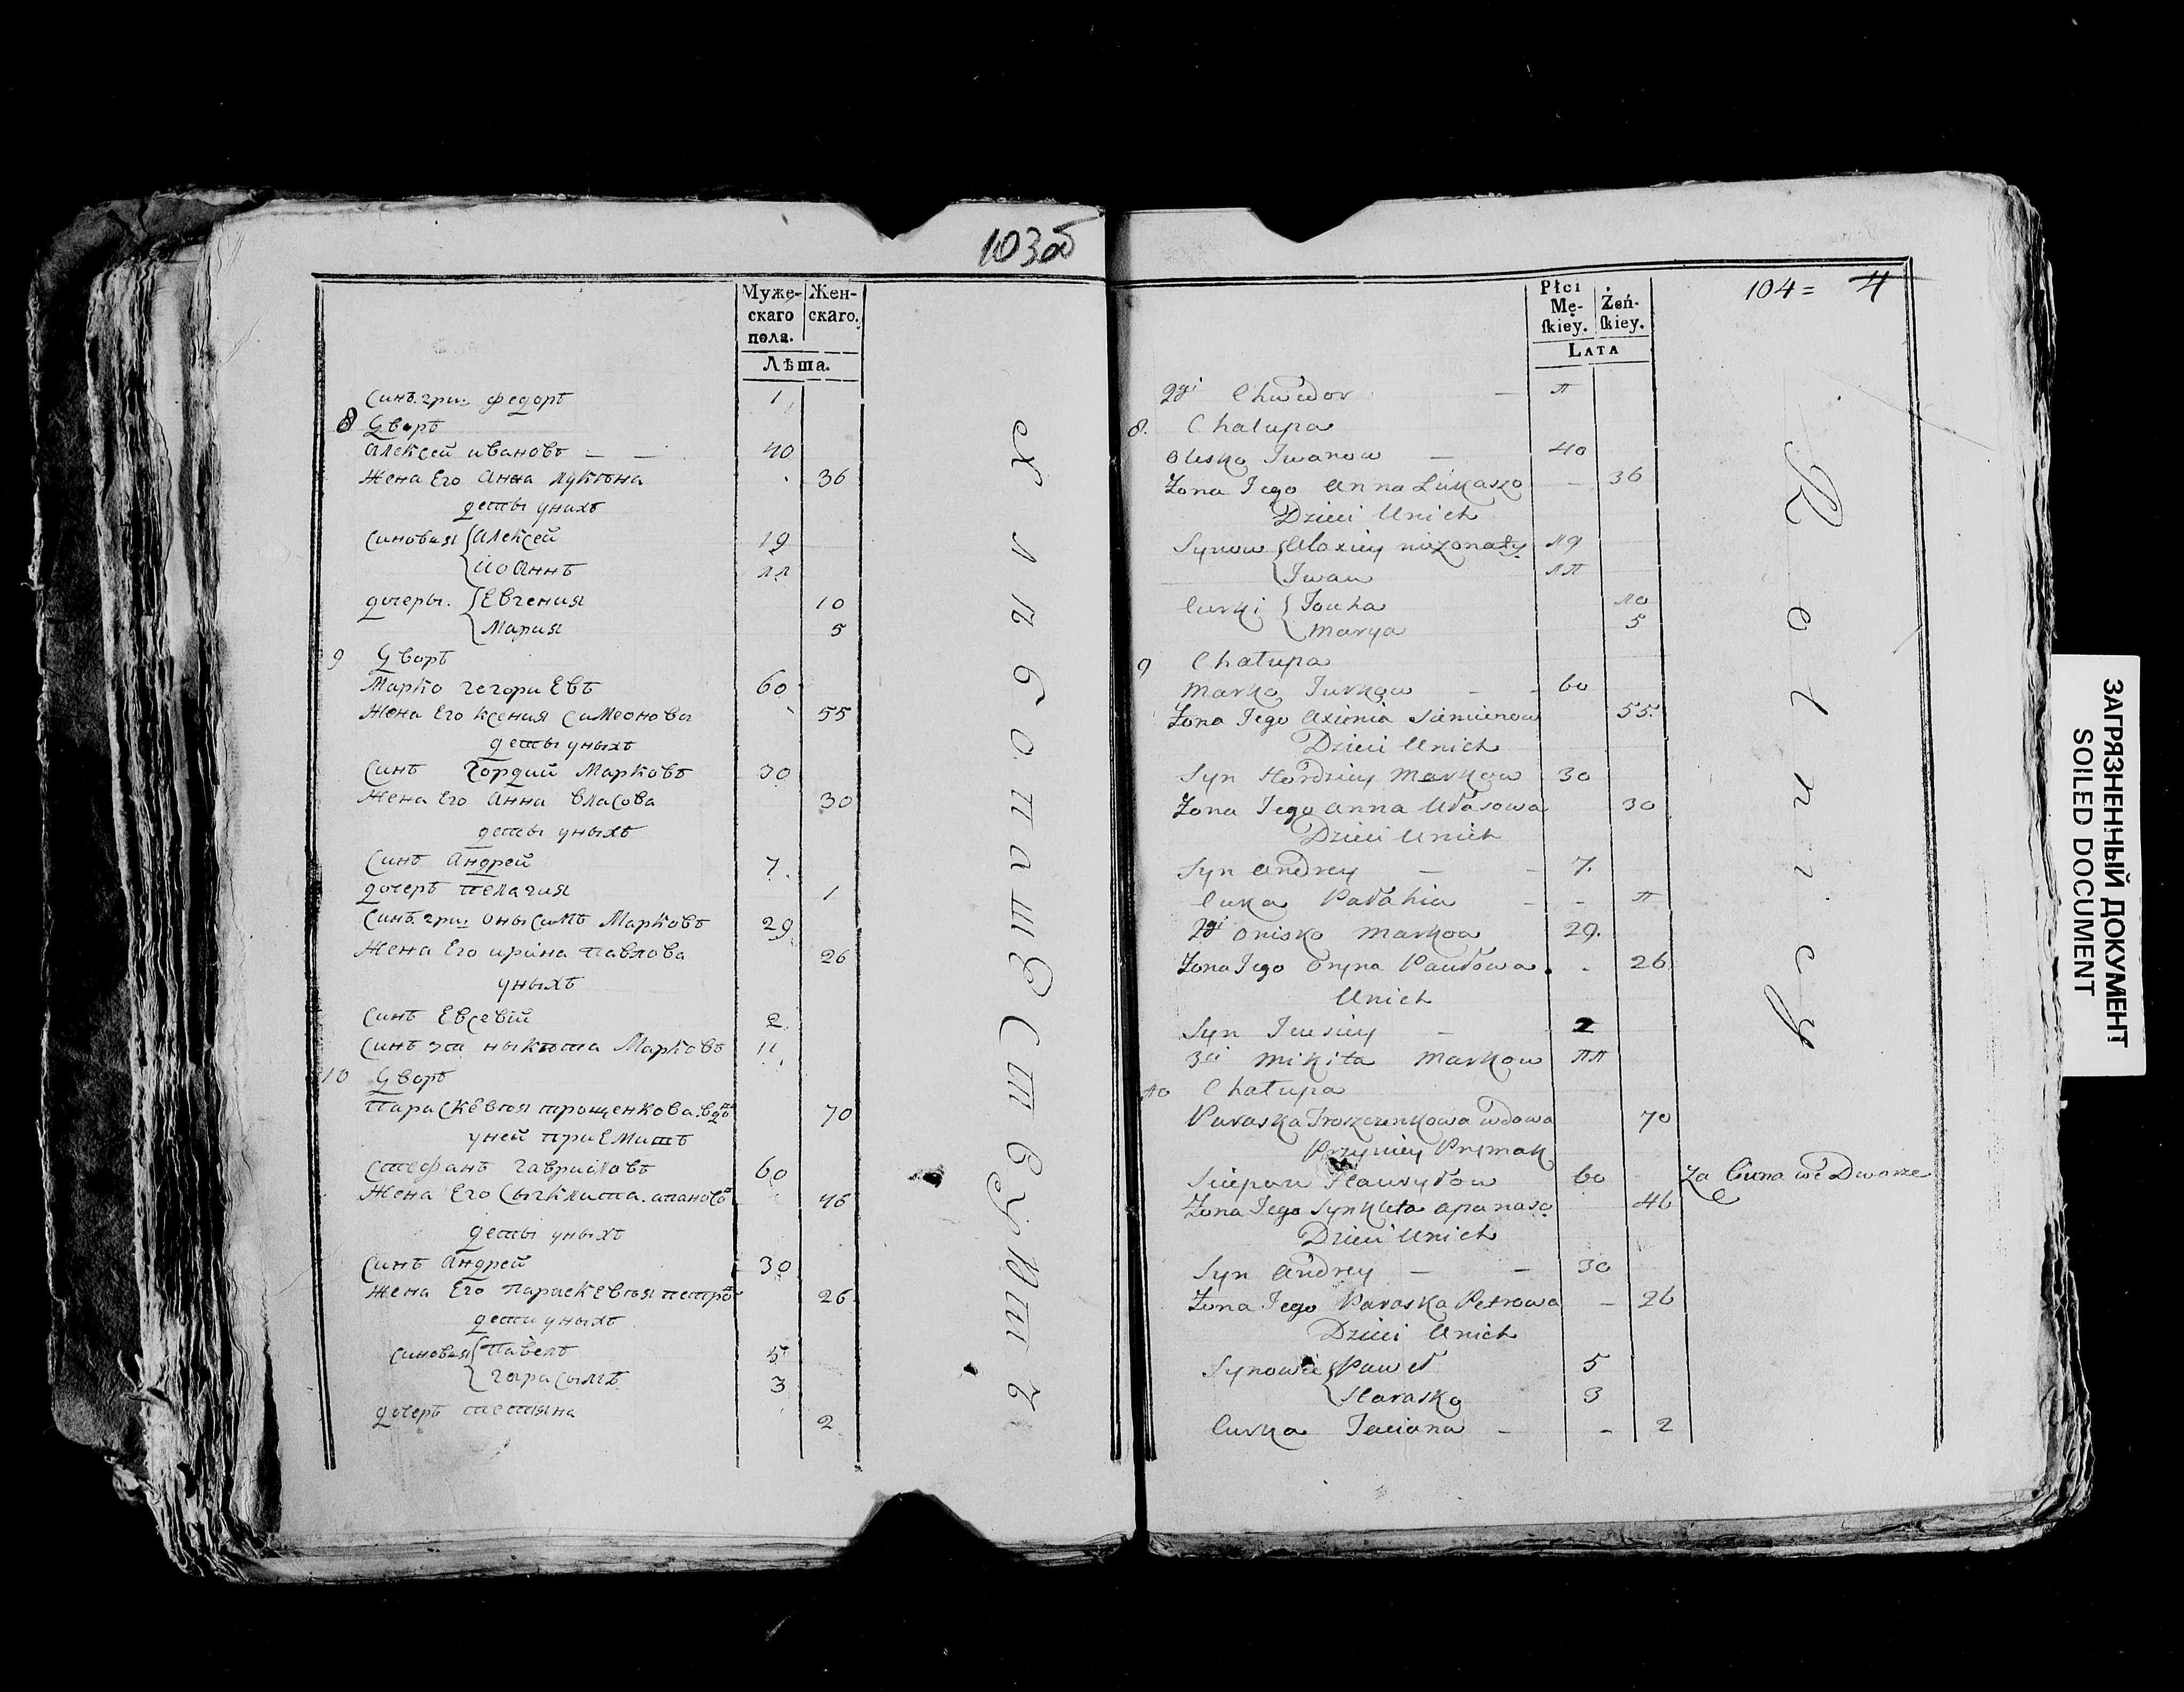 103об
Муже-скаго пола.
Жен-скаго.
Лѣта.
Синъ. гри: федоръ 1
8 Дворъ
Алексей ивановъ — — 40
Жена Его Анна лукѣяна 36
детьi унихъ
Синовья { Алексей 19
{ Иоаннъ 11
дочеры. { Евгения 10
{ Мария 5
9 Дворъ
Марко гегориЕвъ 60
Жена Его Ксения Симеонова 55
детьi уныхъ
Синъ Гордий Марковъ 30
Жена Его Анна власова 30
детьi уныхъ
Синъ Андрей 7.
дочеръ пелагия 1
Синъ. гри: онысимъ Марковъ 29
Жена Его ирина павлова 26
уныхъ
Синъ Евсевiй 2
Синъ эт ныкѣта Марковъ 11
10 Дворъ
Параскевѣя трощенкова вдо 70
уней приЕмишъ
Стефанъ гавриловъ 60
Жена Его Сынклита. апанасо 46
детьi уныхъ
Синъ Андрей 30
Жена Его параскевѣя петро 26
дети уныхъ
Синовья { павелъ 5
{ гарасымъ 3
дочеръ тетяна 2
хлибопашествуитъ
104= 4
Płci Mę-ſkiey.
Żeń-ſkiey.
LATA
2gi Chwedor — 1
8. Chałupa
Olesko Jwanow — 40
Zona Jego Anna Łukaszo — 36
Dzieci Unich
Synow { Alaxiey niezonaty 19
{ Jwan 11
Curki { Jouha 10
{ Marya 5
9 Chałupa
Marko Jurkow — 60
Zona Jego Axienia Siemienow 55.
Dzieci Unich
Syn Hordziey Markow 30
Zona Jego Anna Własowa 30
Dzieci Unich
Syn Andrey — 7.
Curka Pałahia — 1
2gi Onisko Markow 29.
Zona Jego Oryna Pawłowa. 26
Unich
Syn Jeusiey — 2
3ci Mikita Markow 11
10 Chałupa
Paraska Troszczenkowa wdowa 70
Przyniey Prymak
Sciepan Hawryłow 60 Za Cuna we Dworze
Zona Jego Synkleta Apanaso 46
Dzieci Unich
Syn Andrey — — 30
Zona Jego Paraska Petrowa — 26
Dzieci Unich
Synowie { Paweł 5
{ Harasko 3
Curka Taciana — 2
Rolnicy
ЗАГРЯЗНЕННЫЙ ДОКУМЕНТ
SOILED DOCUMENT